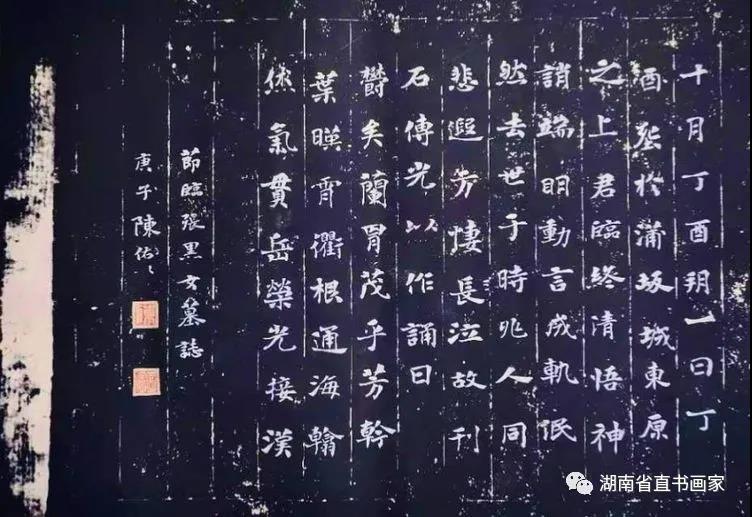 十月丁酉朔一日丁
酉塟於蒲坂城東原
之上君臨終清悟神
誚端明動言成軌泯
然去世于時兆人同
悲遐方悽長泣故刊
石傳光以作誦曰
欝矣蘭胃茂乎芳幹
葉暎霄衢根通海翰
烋氣貫岳榮光接漢
節臨張黑女墓誌
庚子陳佑
湖南省直书画家